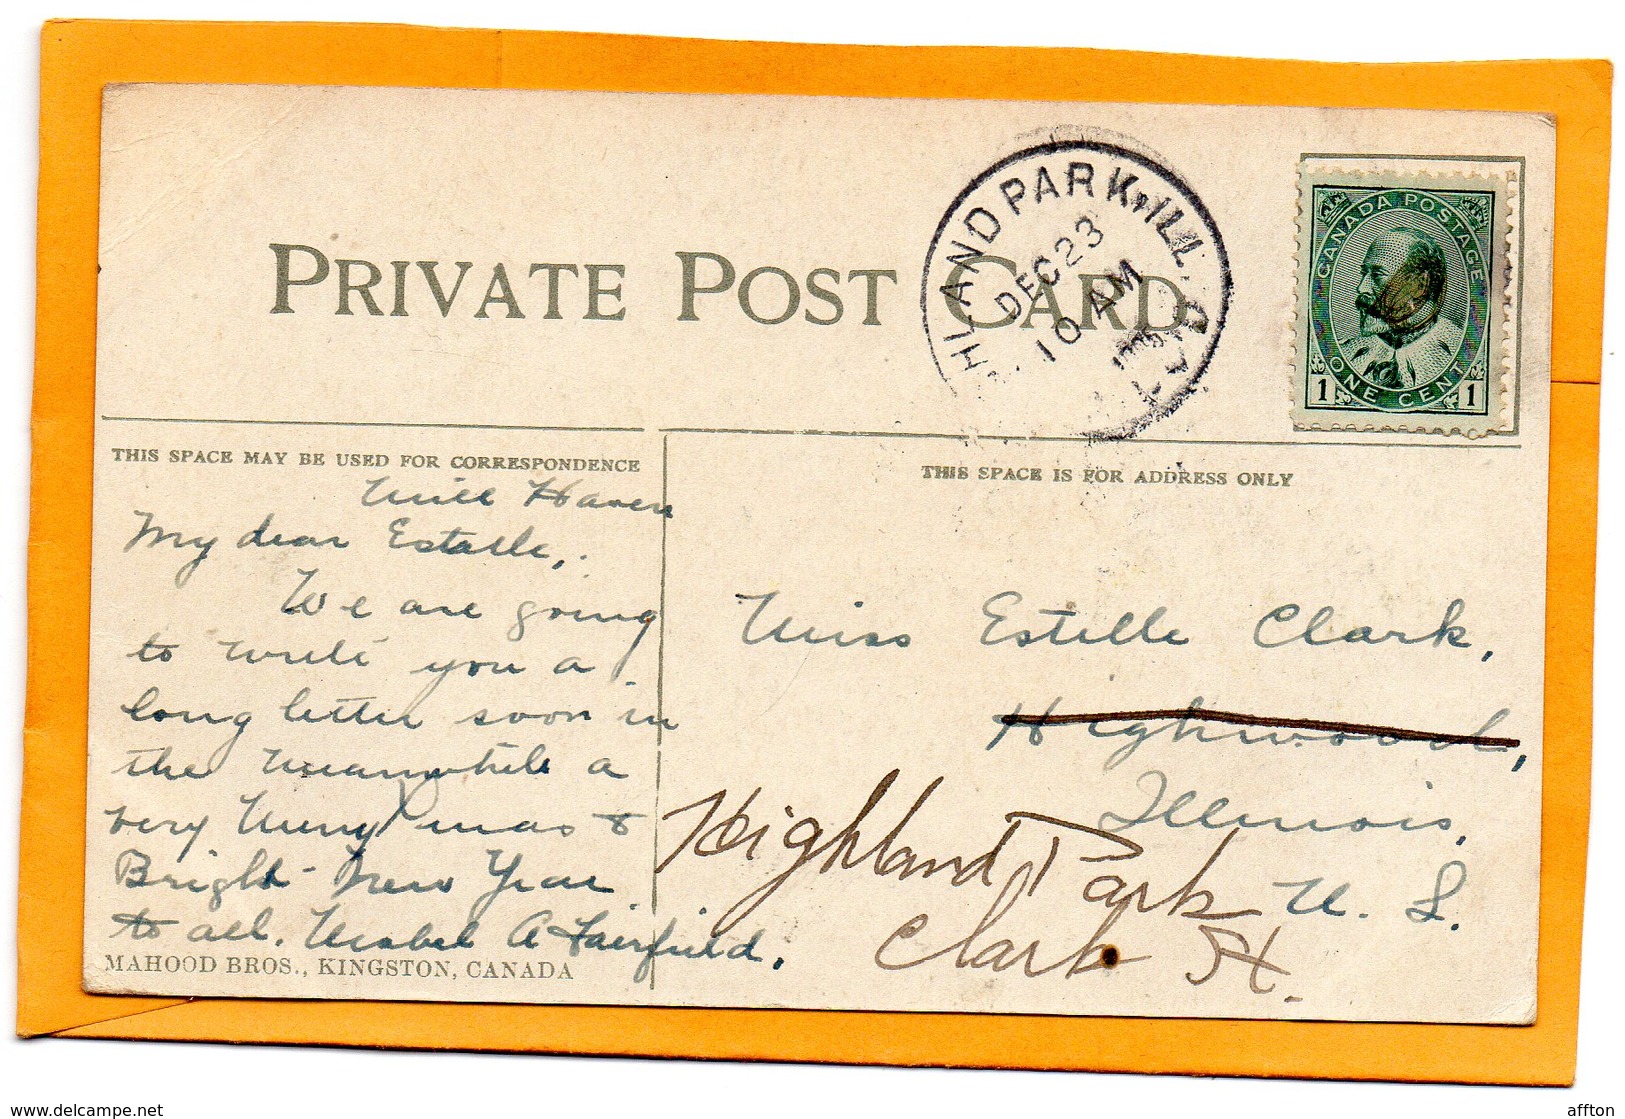 PRIVATE POST CARD
HLAND PARK, ILL.
DEC 23
10 AM
CANADA POSTAGE
1 ONE CENT 1
THIS SPACE MAY BE USED FOR CORRESPONDENCE
THIS SPACE IS FOR ADDRESS ONLY
Mill Haven
My dear Estelle,
We are going
to write you a
long letter soon in
the meanwhile a
very Merry Xmas &
Bright New Year
to all. Mabel A Fairfield.
MAHOOD BROS., KINGSTON, CANADA
Miss Estelle Clark,
Highwood,
Illinois,
Highland Park
U. S.
Clark St.
delcampe.net
affton